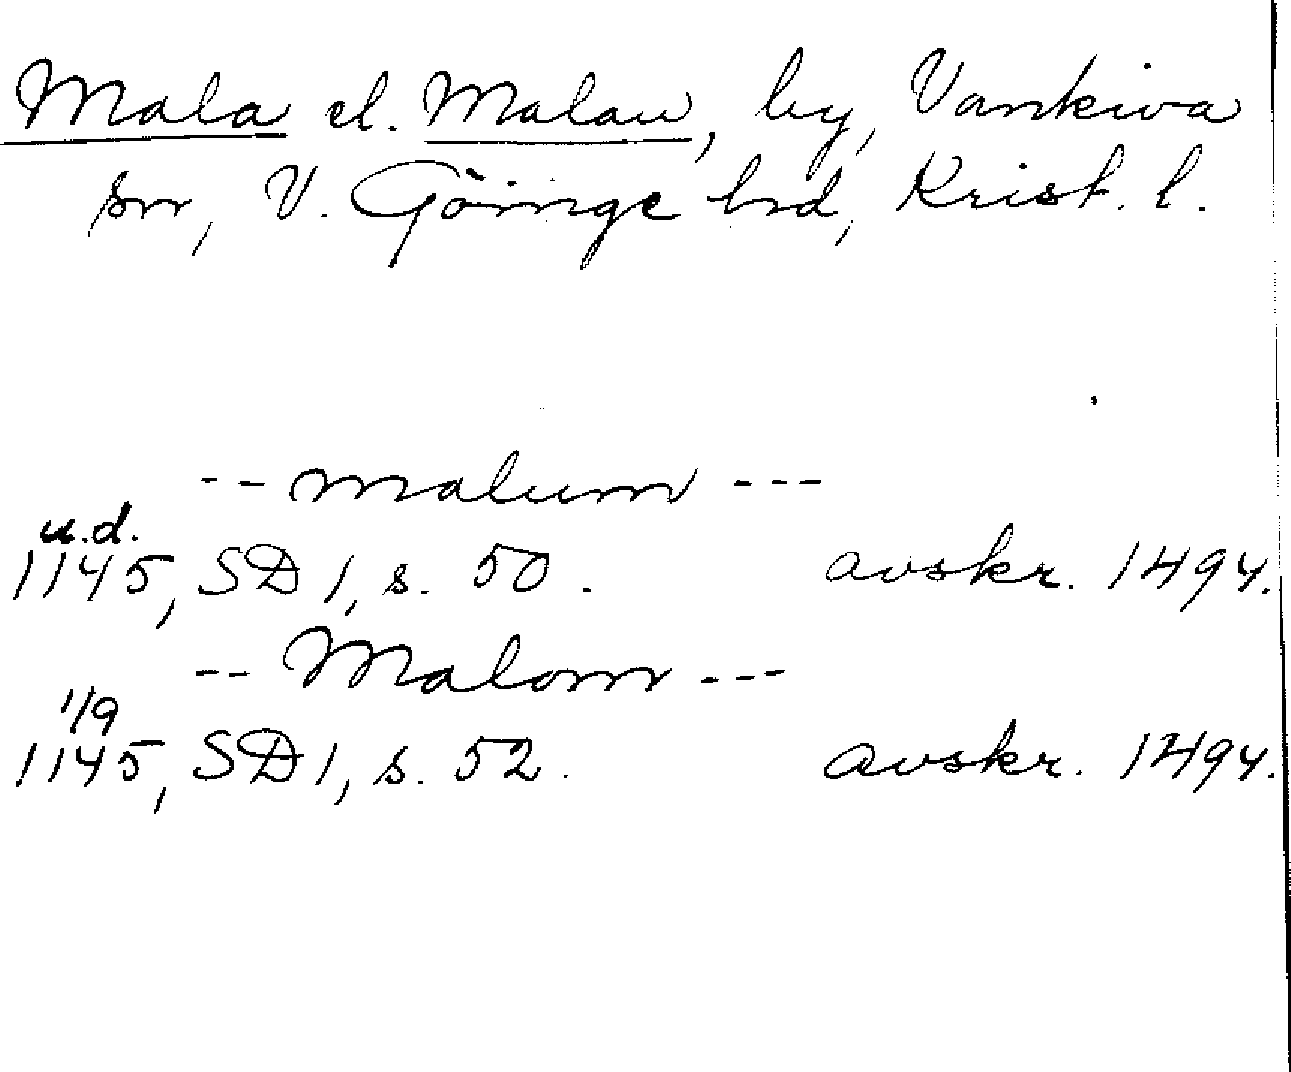 Mala el. Malau, by, Vankiva
sn, V. Göinge hd, Krist. l.
-- malum ---
u.d.
1145, SD 1, s. 50. avskr. 1494.
-- Malom ---
1/9
1145, SD 1, s. 52. avskr. 1494.